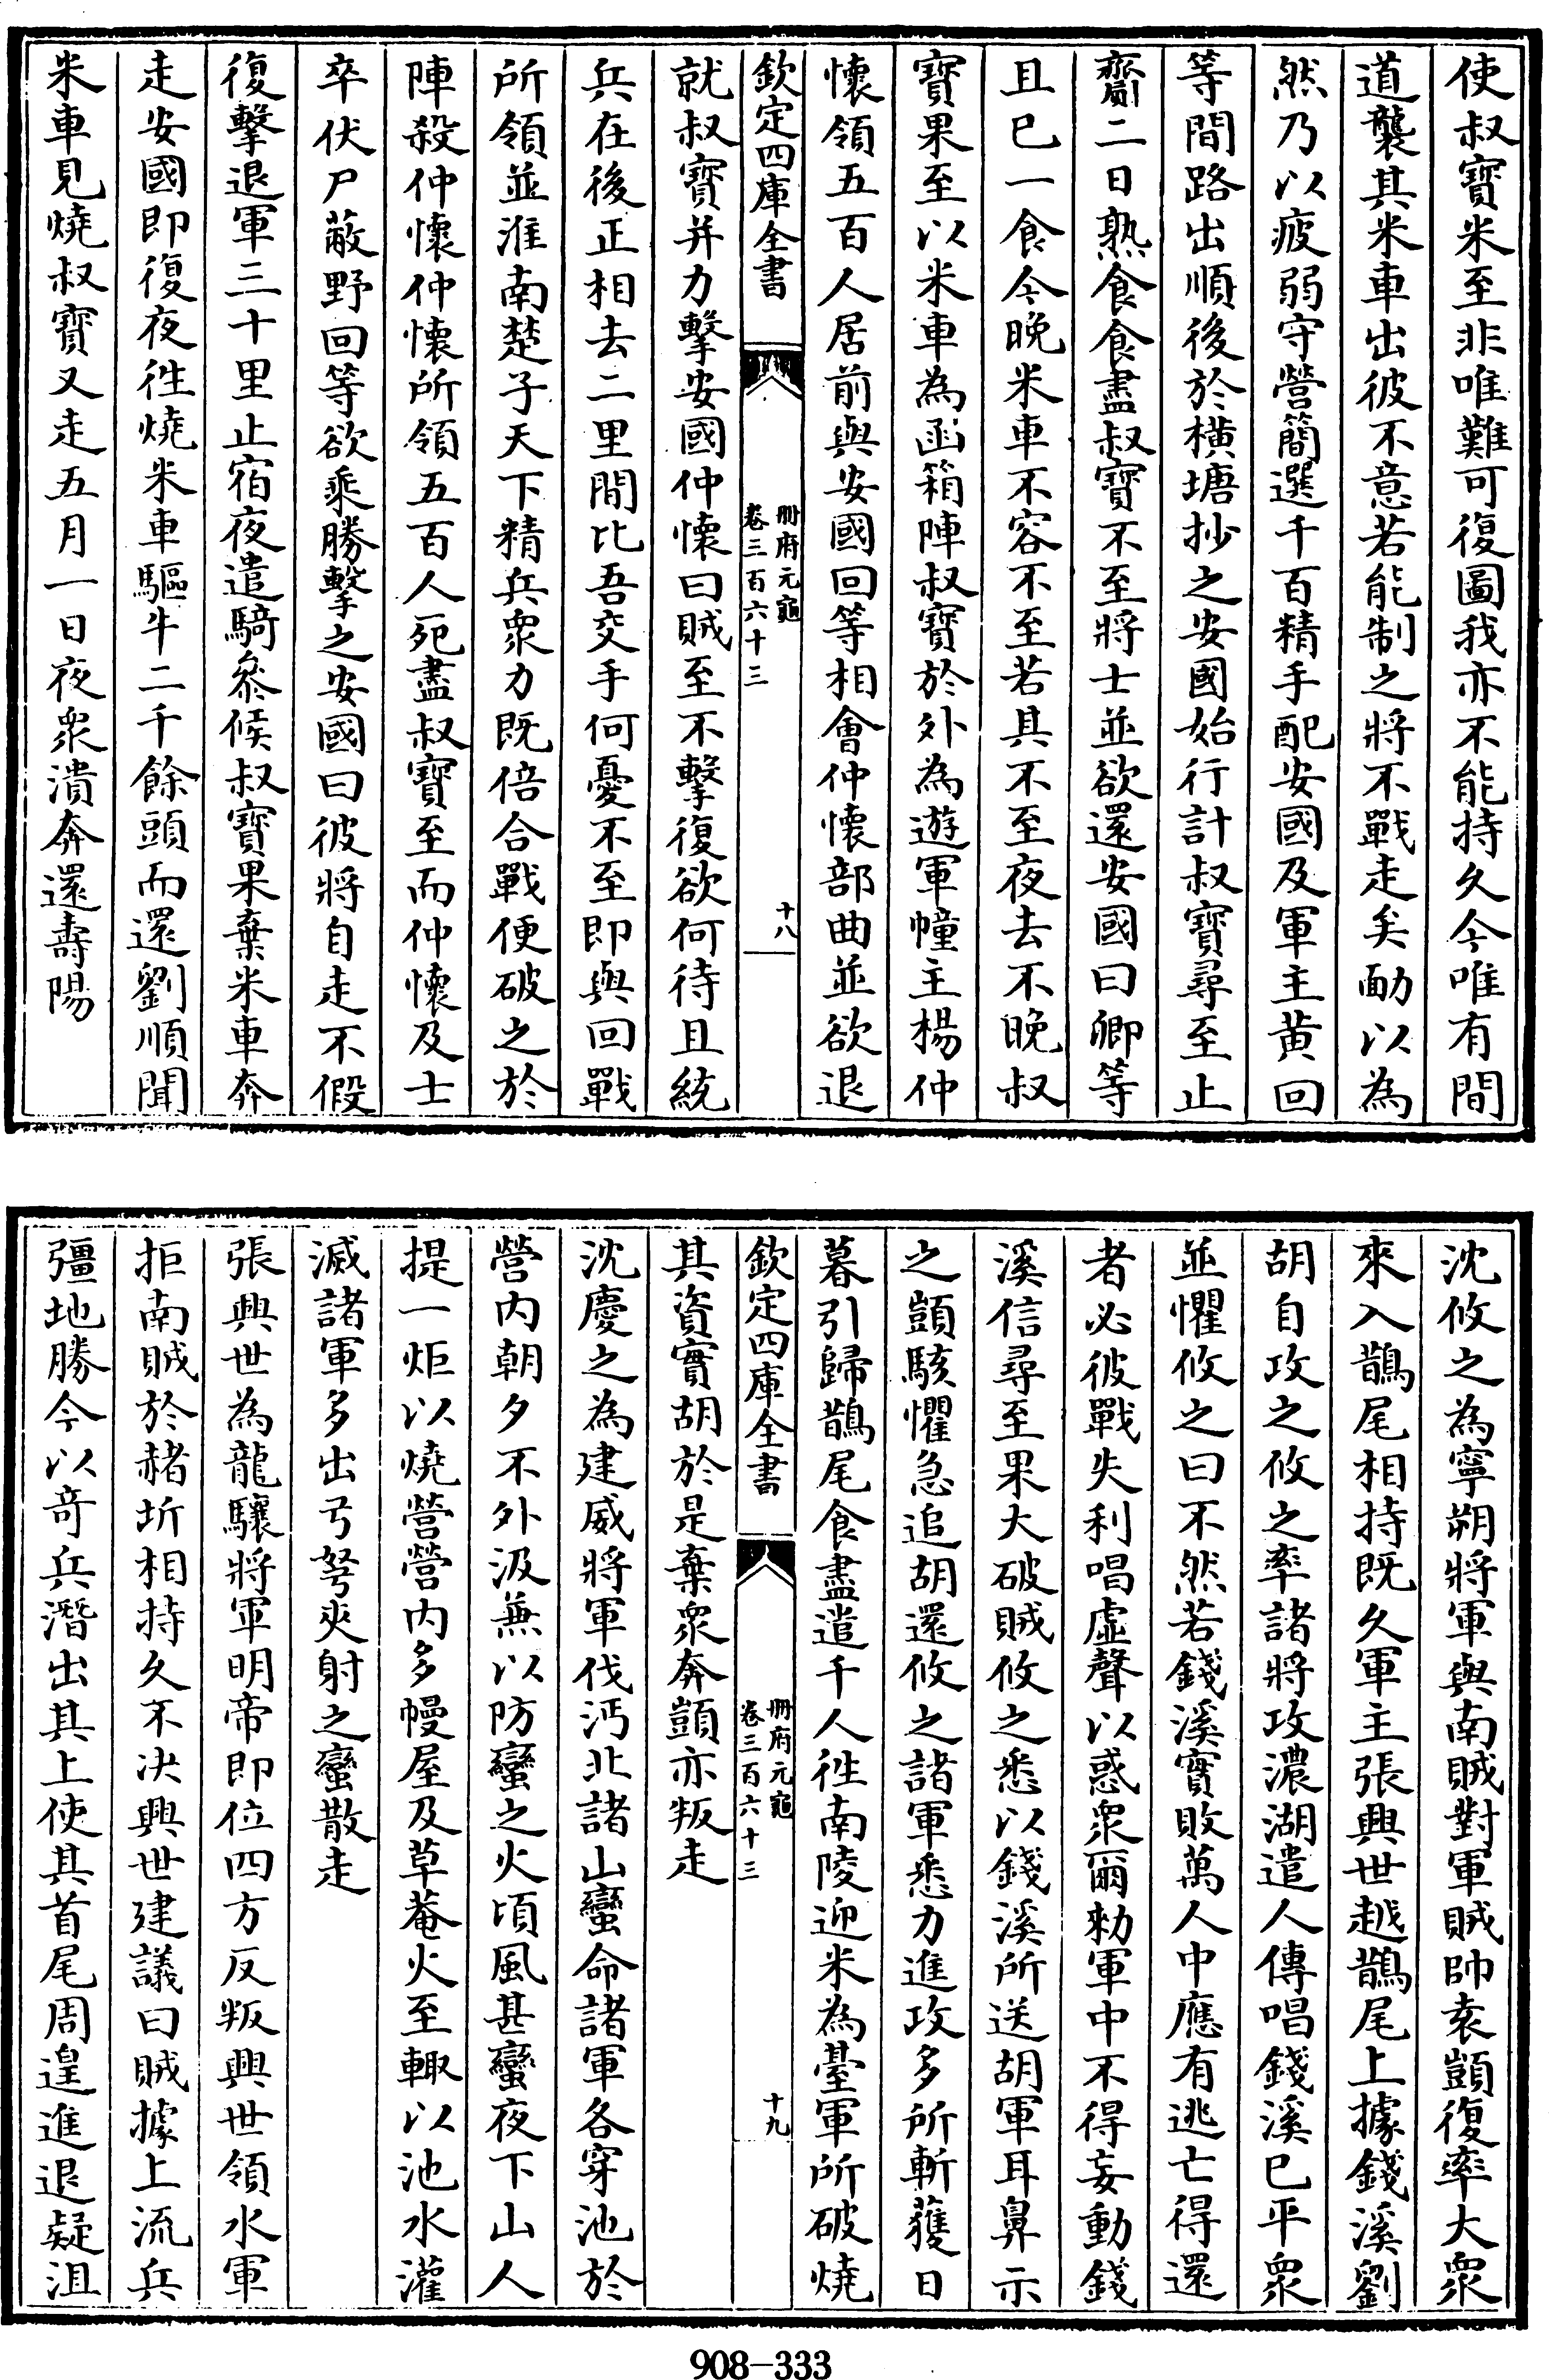 使叔寶米至非唯難可復圖我亦不能持久今唯有間
道襲其米車出彼不意若能制之將不戰走矣勔以為
然乃以疲弱守營簡選千百精手配安國及軍主黄回
等間路出順後於横塘抄之安國始行計叔寶尋至止
齎二日熟食食盡叔寶不至將士並欲還安國曰卿等
且已一食今晚米車不容不至若其不至夜去不晚叔
寶果至以米車為函箱陣叔寶於外為遊軍幢主楊仲
懷領五百人居前與安國回等相會仲懷部曲並欲退
欽定四庫全書
冊府元龜
卷三百六十三
十八
就叔寶并力擊安國仲懷曰賊至不擊復欲何待且統
兵在後正相去二里間比吾交手何憂不至即與回戰
所領並淮南楚子天下精兵衆力既倍合戰便破之於
陣殺仲懷仲懷所領五百人死盡叔寶至而仲懷及士
卒伏尸蔽野回等欲乘勝擊之安國曰彼將自走不假
復擊退軍三十里止宿夜遣騎參候叔寶果棄米車奔
走安國即復夜徃燒米車驅牛二千餘頭而還劉順聞
米車見燒叔寶又走五月一日夜衆潰奔還壽陽
沈攸之為寧朔將軍與南賊對軍賊帥袁顗復率大衆
來入鵲尾相持既久軍主張興世越鵲尾上據錢溪劉
胡自攻之攸之率諸將攻濃湖遣人傳唱錢溪已平衆
並懼攸之曰不然若錢溪實敗萬人中應有逃亡得還
者必彼戰失利唱虛聲以惑衆爾勑軍中不得妄動錢
溪信尋至果大破賊攸之悉以錢溪所送胡軍耳鼻示
之顗駭懼急追胡還攸之諸軍悉力進攻多所斬獲日
暮引歸鵲尾食盡遣千人徃南陵迎米為臺軍所破燒
欽定四庫全書
冊府元龜
卷三百六十三
十九
其資實胡於是棄衆奔顗亦叛走
沈慶之為建威將軍伐沔北諸山蠻命諸軍各穿池於
營内朝夕不外汲兼以防蠻之火頃風甚蠻夜下山人
提一炬以燒營營内多幔屋及草菴火至輙以池水灌
滅諸軍多出弓弩夾射之蠻散走
張興世為龍驤將軍明帝即位四方反叛興世領水軍
拒南賊於赭圻相持久不決興世建議曰賊據上流兵
彊地勝今以奇兵潛出其上使其首尾周遑進退疑沮
908-333